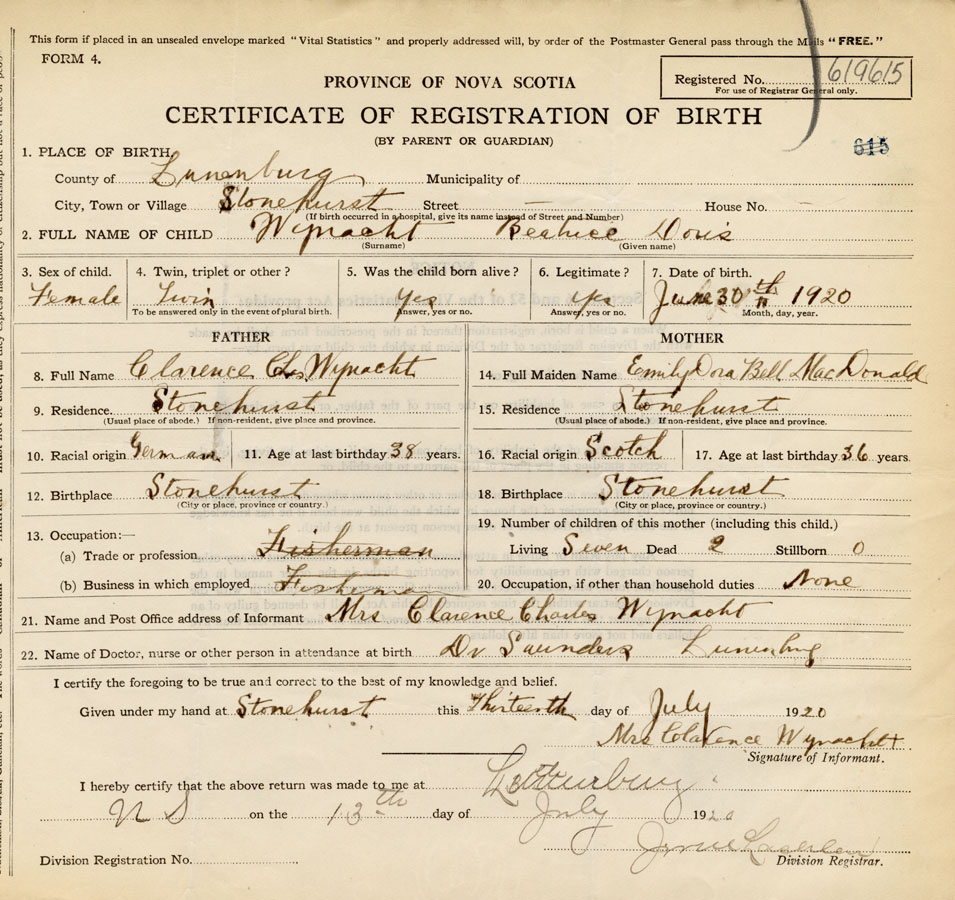 This form if placed in an unsealed envelope marked "Vital Statistics" and properly addressed will, by order of the Postmaster General pass through the Mails "FREE."
FORM 4.
Registered No. 619615
For use of Registrar General only.
PROVINCE OF NOVA SCOTIA
CERTIFICATE OF REGISTRATION OF BIRTH
(BY PARENT OR GUARDIAN)
615
1. PLACE OF BIRTH
County of Lunenburg Municipality of
City, Town or Village Stonehurst Street — House No. —
(If birth occurred in a hospital, give its name instead of Street and Number)
2. FULL NAME OF CHILD Wynacht Beatrice Doris
(Surname) (Given name)
3. Sex of child. 4. Twin, triplet or other? 5. Was the child born alive? 6. Legitimate? 7. Date of birth.
Female Twin Yes Yes June 30th 1920
To be answered only in the event of plural birth. Answer, yes or no. Answer, yes or no. Month, day, year.
FATHER
8. Full Name Clarence Chs Wynacht
9. Residence. Stonehurst
(Usual place of abode.) If non-resident, give place and province.
10. Racial origin German 11. Age at last birthday 38 years.
12. Birthplace Stonehurst
(City or place, province or country.)
13. Occupation:—
(a) Trade or profession Fisherman
(b) Business in which employed
MOTHER
14. Full Maiden Name Emily Dora Bell MacDonald
15. Residence Stonehurst
(Usual place of abode.) If non-resident, give place and province.
16. Racial origin Scotch 17. Age at last birthday 36 years.
18. Birthplace Stonehurst
(City or place, province or country.)
19. Number of children of this mother (including this child.)
Living Seven Dead 2 Stillborn 0
20. Occupation, if other than household duties None
21. Name and Post Office address of Informant Mrs Clarence Charles Wynacht
22. Name of Doctor, nurse or other person in attendance at birth Dr Saunders Lunenburg
I certify the foregoing to be true and correct to the best of my knowledge and belief.
Given under my hand at Stonehurst this Thirteenth day of July 1920
Mrs Clarence Wynacht
Signature of Informant.
I hereby certify that the above return was made to me at Lunenburg
N S on the 13th day of July 1920
Division Registration No. Division Registrar.